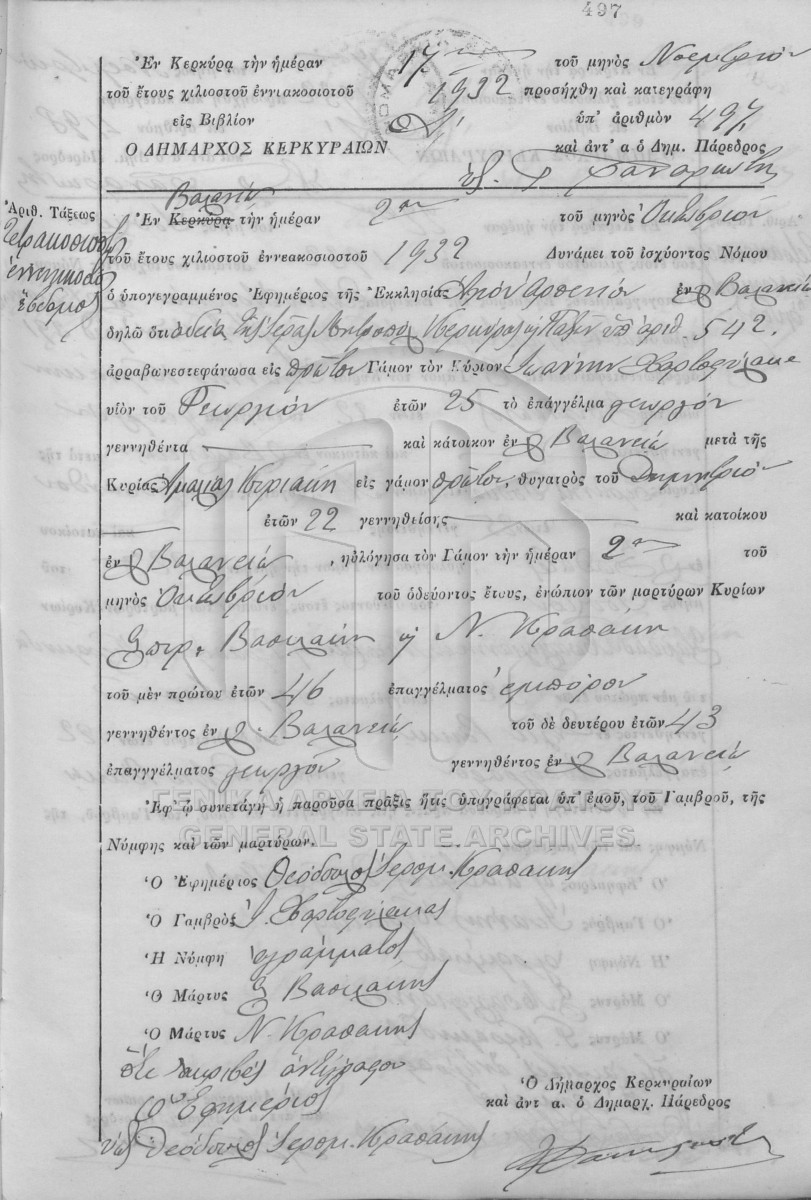 497
Ἐν Κερκύρᾳ τὴν ἡμέραν 17ην τοῦ μηνὸς Νοεμβρίου
τοῦ ἔτους χιλιοστοῦ ἐννιακοσιοτοῦ 1932 προσήχθη καὶ κατεγράφη
εἰς Βιβλίον Δ/ ὑπ' ἀριθμὸν 497
Ο ΔΗΜΑΡΧΟΣ ΚΕΡΚΥΡΑΙΩΝ καὶ ἀντ' α ὁ Δημ. Πάρεδρος
Βαλανειῷ
Ἀριθ. Τάξεως
Τετρακοσιοστὸς
ἐννενηκοστὸς
ἕβδομος
Ἐν Κερκύρᾳ τὴν ἡμέραν 2αν τοῦ μηνὸς Ὀκτωβρίου
τοῦ ἔτους χιλιοστοῦ ἐννεακοσιοστοῦ 1932 Δυνάμει τοῦ ἰσχύοντος Νόμου
ὁ ὑπογεγραμμένος Ἐφημέριος τῆς Ἐκκλησίας Ἁγίου Ἀρσενίου ἐν Βαλανειῷ
δηλῶ ὅτι ἀδείᾳ τῆς Ἱερᾶς Μητροπόλ. Κερκύρας κ Παξῶν ὑπ' ἀριθ. 542.
ἀρραβωνεστεφάνωσα εἰς πρῶτον Γάμον τὸν Κύριον Ἰωάννην Χαρτοφύλακα
υἱὸν τοῦ Γεωργίου ἐτῶν 25 τὸ ἐπάγγελμα γεωργὸν
γεννηθέντα καὶ κάτοικον ἐν Βαλανειῷ μετὰ τῆς
Κυρίας Ἀμαλίας Κυριάκη εἰς γάμον πρῶτον, θυγατρὸς τοῦ Δημητρίου
ἐτῶν 22 γεννηθείσης καὶ κατοίκου
ἐν Βαλανειῷ , ηὐλόγησα τὸν Γάμον τὴν ἡμέραν 2αν τοῦ
μηνὸς Ὀκτωβρίου τοῦ ὁδεύοντος ἔτους, ἐνώπιον τῶν μαρτύρων Κυρίων
Σπυρ. Βασιλάκη κ Ν. Κραπάκη
τοῦ μὲν πρώτου ἐτῶν 46 ἐπαγγέλματος ἐμπόρου
γεννηθέντος ἐν Βαλανειῷ τοῦ δὲ δευτέρου ἐτῶν 43
ἐπαγγγέλματος γεωργοῦ γεννηθέντος ἐν Βαλανειῷ
Ἐφ' ᾧ συνετάγη ἡ παροῦσα πρᾶξις ἥτις ὑπογράφεται ὑπ' ἐμοῦ, τοῦ Γαμβροῦ, τῆς
Νύμφης καὶ τῶν μαρτύρων.
ΓΕΝΙΚΑ ΑΡΧΕΙΑ ΤΟΥ ΚΡΑΤΟΥΣ
GENERAL STATE ARCHIVES
Ὁ Ἐφημέριος Θεόδουλος Ἱερομ. Κραπάκης
Ὁ Γαμβρὸς Ι Χαρτοφύλακας
Ἡ Νύμφη ἀγράμματος
Ὁ Μάρτυς Σ Βασιλάκης
Ὁ Μάρτυς Ν. Κραπάκης
Ὅτι ἀκριβὲς ἀντίγραφον
Ὁ Ἐφημέριος
Θεόδουλος Ἱερομ. Κραπάκης
Ὁ Δήμαρχος Κερκυραίων
καὶ ἀντ α. ὁ Δημαρχ. Πάρεδρος